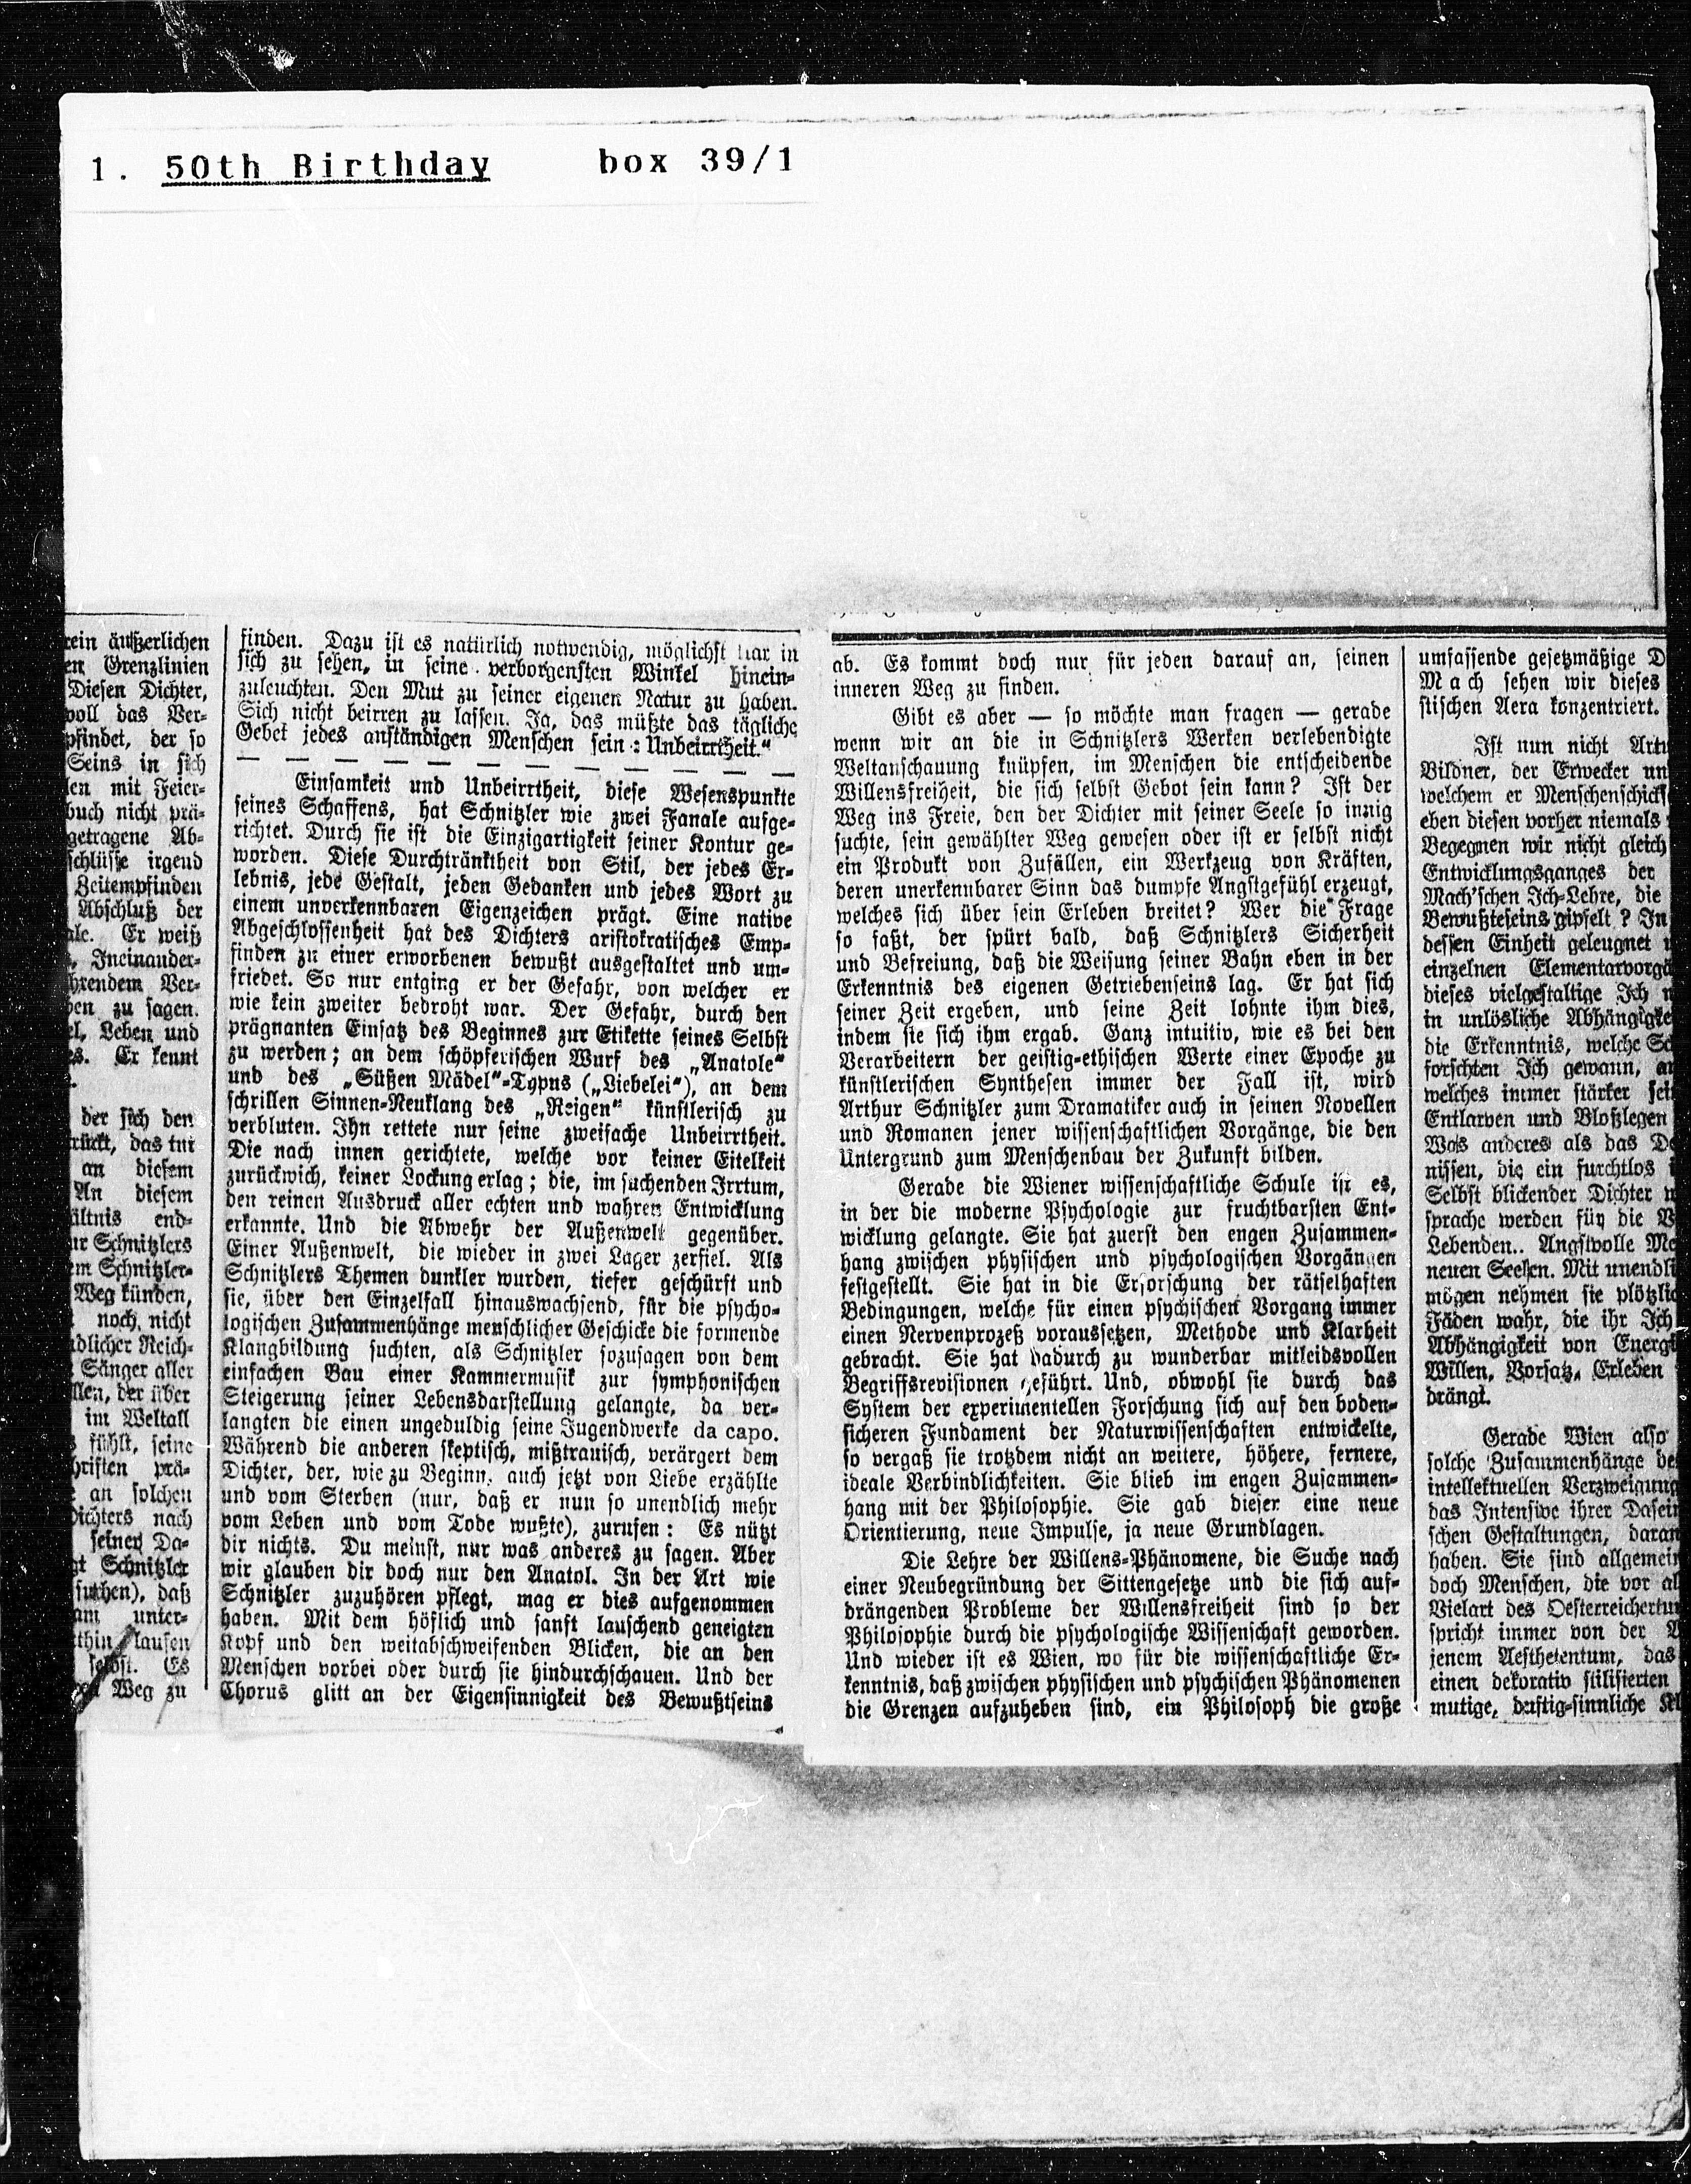 1. 50th Birthday box 39/1
rein äußerlichen
en Grenzlinien
Diesen Dichter,
voll das Ver-
pfindet, der so
Seins in sich
len mit Feier-
buch nicht prä-
getragene Ab-
schlüsse irgend
Zeitempfinden
Abschluß der
ale. Er weiß
, Ineinander-
hrendem Ver-
ben zu sagen.
el, Leben und
es. Er kennt
der sich den
rückt, das tut
an diesem
An diesem
ältnis end-
ur Schnitzlers
em Schnitzler-
Weg künden,
noch nicht
ndlicher Reich-
Sänger aller
llen, der über
im Weltall
s fühlt, seine
hriften prä-
e an solchen
Dichters nach
seiner Da-
gt Schnitzler
suchen), daß
am unter-
thin laufen
selbst. Es
Weg zu
finden. Dazu ist es natürlich notwendig, möglichst klar in
sich zu sehen, in seine verborgensten Winkel hinein-
zuleuchten. Den Mut zu seiner eigenen Natur zu haben.
Sich nicht beirren zu lassen. Ja, das müßte das tägliche
Gebet jedes anständigen Menschen sein: Unbeirrtheit.“
— — — — — — — — — — — —
Einsamkeit und Unbeirrtheit, diese Wesenspunkte
seines Schaffens, hat Schnitzler wie zwei Fanale aufge-
richtet. Durch sie ist die Einzigartigkeit seiner Kontur ge-
worden. Diese Durchtränktheit von Stil, der jedes Er-
lebnis, jede Gestalt, jeden Gedanken und jedes Wort zu
einem unverkennbaren Eigenzeichen prägt. Eine native
Abgeschlossenheit hat des Dichters aristokratisches Emp-
finden zu einer erworbenen bewußt ausgestaltet und um-
friedet. So nur entging er der Gefahr, von welcher er
wie kein zweiter bedroht war. Der Gefahr, durch den
prägnanten Einsatz des Beginnes zur Etikette seines Selbst
zu werden; an dem schöpferischen Wurf des „Anatole“
und des „Süßen Mädel“-Typus („Liebelei“), an dem
schrillen Sinnen-Neuklang des „Reigen“ künstlerisch zu
verbluten. Ihn rettete nur seine zweifache Unbeirrtheit.
Die nach innen gerichtete, welche vor keiner Eitelkeit
zurückwich, keiner Lockung erlag; die, im suchenden Irrtum,
den reinen Ausdruck aller echten und wahren Entwicklung
erkannte. Und die Abwehr der Außenwelt gegenüber.
Einer Außenwelt, die wieder in zwei Lager zerfiel. Als
Schnitzlers Themen dunkler wurden, tiefer geschürft und
sie, über den Einzelfall hinauswachsend, für die psycho-
logischen Zusammenhänge menschlicher Geschicke die formende
Klangbildung suchten, als Schnitzler sozusagen von dem
einfachen Bau einer Kammermusik zur symphonischen
Steigerung seiner Lebensdarstellung gelangte, da ver-
langten die einen ungeduldig seine Jugendwerke da capo.
Während die anderen skeptisch, mißtrauisch, verärgert dem
Dichter, der, wie zu Beginn, auch jetzt von Liebe erzählte
und vom Sterben (nur, daß er nun so unendlich mehr
vom Leben und vom Tode wußte), zurufen: Es nützt
dir nichts. Du meinst, nur was anderes zu sagen. Aber
wir glauben dir doch nur den Anatol. In der Art wie
Schnitzler zuzuhören pflegt, mag er dies aufgenommen
haben. Mit dem höflich und sanft lauschend geneigten
Kopf und den weitabschweifenden Blicken, die an den
Menschen vorbei oder durch sie hindurchschauen. Und der
Chorus glitt an der Eigensinnigkeit des Bewußtseins
ab. Es kommt doch nur für jeden darauf an, seinen
inneren Weg zu finden.
Gibt es aber — so möchte man fragen — gerade
wenn wir an die in Schnitzlers Werken verlebendigte
Weltanschauung knüpfen, im Menschen die entscheidende
Willensfreiheit, die sich selbst Gebot sein kann? Ist der
Weg ins Freie, den der Dichter mit seiner Seele so innig
suchte, sein gewählter Weg gewesen oder ist er selbst nicht
ein Produkt von Zufällen, ein Werkzeug von Kräften,
deren unerkennbarer Sinn das dumpfe Angstgefühl erzeugt,
welches sich über sein Erleben breitet? Wer die Frage
so faßt, der spürt bald, daß Schnitzlers Sicherheit
und Befreiung, daß die Weisung seiner Bahn eben in der
Erkenntnis des eigenen Getriebenseins lag. Er hat sich
seiner Zeit ergeben, und seine Zeit lohnte ihm dies,
indem sie sich ihm ergab. Ganz intuitiv, wie es bei den
Verarbeitern der geistig-ethischen Werte einer Epoche zu
künstlerischen Synthesen immer der Fall ist, wird
Arthur Schnitzler zum Dramatiker auch in seinen Novellen
und Romanen jener wissenschaftlichen Vorgänge, die den
Untergrund zum Menschenbau der Zukunft bilden.
Gerade die Wiener wissenschaftliche Schule ist es,
in der die moderne Psychologie zur fruchtbarsten Ent-
wicklung gelangte. Sie hat zuerst den engen Zusammen-
hang zwischen physischen und psychologischen Vorgängen
festgestellt. Sie hat in die Erforschung der rätselhaften
Bedingungen, welche für einen psychischen Vorgang immer
einen Nervenprozeß voraussetzen, Methode und Klarheit
gebracht. Sie hat dadurch zu wunderbar mitleidsvollen
Begriffsrevisionen geführt. Und, obwohl sie durch das
System der experimentellen Forschung sich auf den boden-
sicheren Fundament der Naturwissenschaften entwickelte,
so vergaß sie trotzdem nicht an weitere, höhere, fernere,
ideale Verbindlichkeiten. Sie blieb im engen Zusammen-
hang mit der Philosophie. Sie gab dieser eine neue
Orientierung, neue Impulse, ja neue Grundlagen.
Die Lehre der Willens-Phänomene, die Suche nach
einer Neubegründung der Sittengesetze und die sich auf-
drängenden Probleme der Willensfreiheit sind so der
Philosophie durch die psychologische Wissenschaft geworden.
Und wieder ist es Wien, wo für die wissenschaftliche Er-
kenntnis, daß zwischen physischen und psychischen Phänomenen
die Grenzen aufzuheben sind, ein Philosoph die große
umfassende gesetzmäßige D
Mach sehen wir dieses
stischen Aera konzentriert.
Ist nun nicht Art
Bildner, der Erwecker un
welchem er Menschenschicks
eben diesen vorher niemals
Begegnen wir nicht gleich
Entwicklungsganges der
Mach'schen Ich-Lehre, die
Bewußtseins gipfelt? In
dessen Einheit geleugnet
einzelnen Elementarvorgä
dieses vielgestaltige Ich
in unlösliche Abhängigke
die Erkenntnis, welche Sc
forschten Ich gewann, a
welches immer stärker sei
Entlarven und Bloßlegen
Was anderes als das De
nissen, die ein furchtlos
Selbst blickender Dichter
sprache werden für die V
Lebenden.. Angstvolle Me
neuen Seelen. Mit unendli
mögen nehmen sie plötzlic
Fäden wahr, die ihr Ich
Abhängigkeit von Energi
Willen, Vorsatz, Erleben
drängt.
Gerade Wien also
solche Zusammenhänge be
intellektuellen Verzweigung
das Intensive ihrer Dasein
schen Gestaltungen, daran
haben. Sie sind allgemein
doch Menschen, die vor al
Vielart des Oesterreichertu
spricht immer von der
jenem Aesthetentum, das
einen dekorativ stilisierten
mutige, deftig-sinnliche Kl